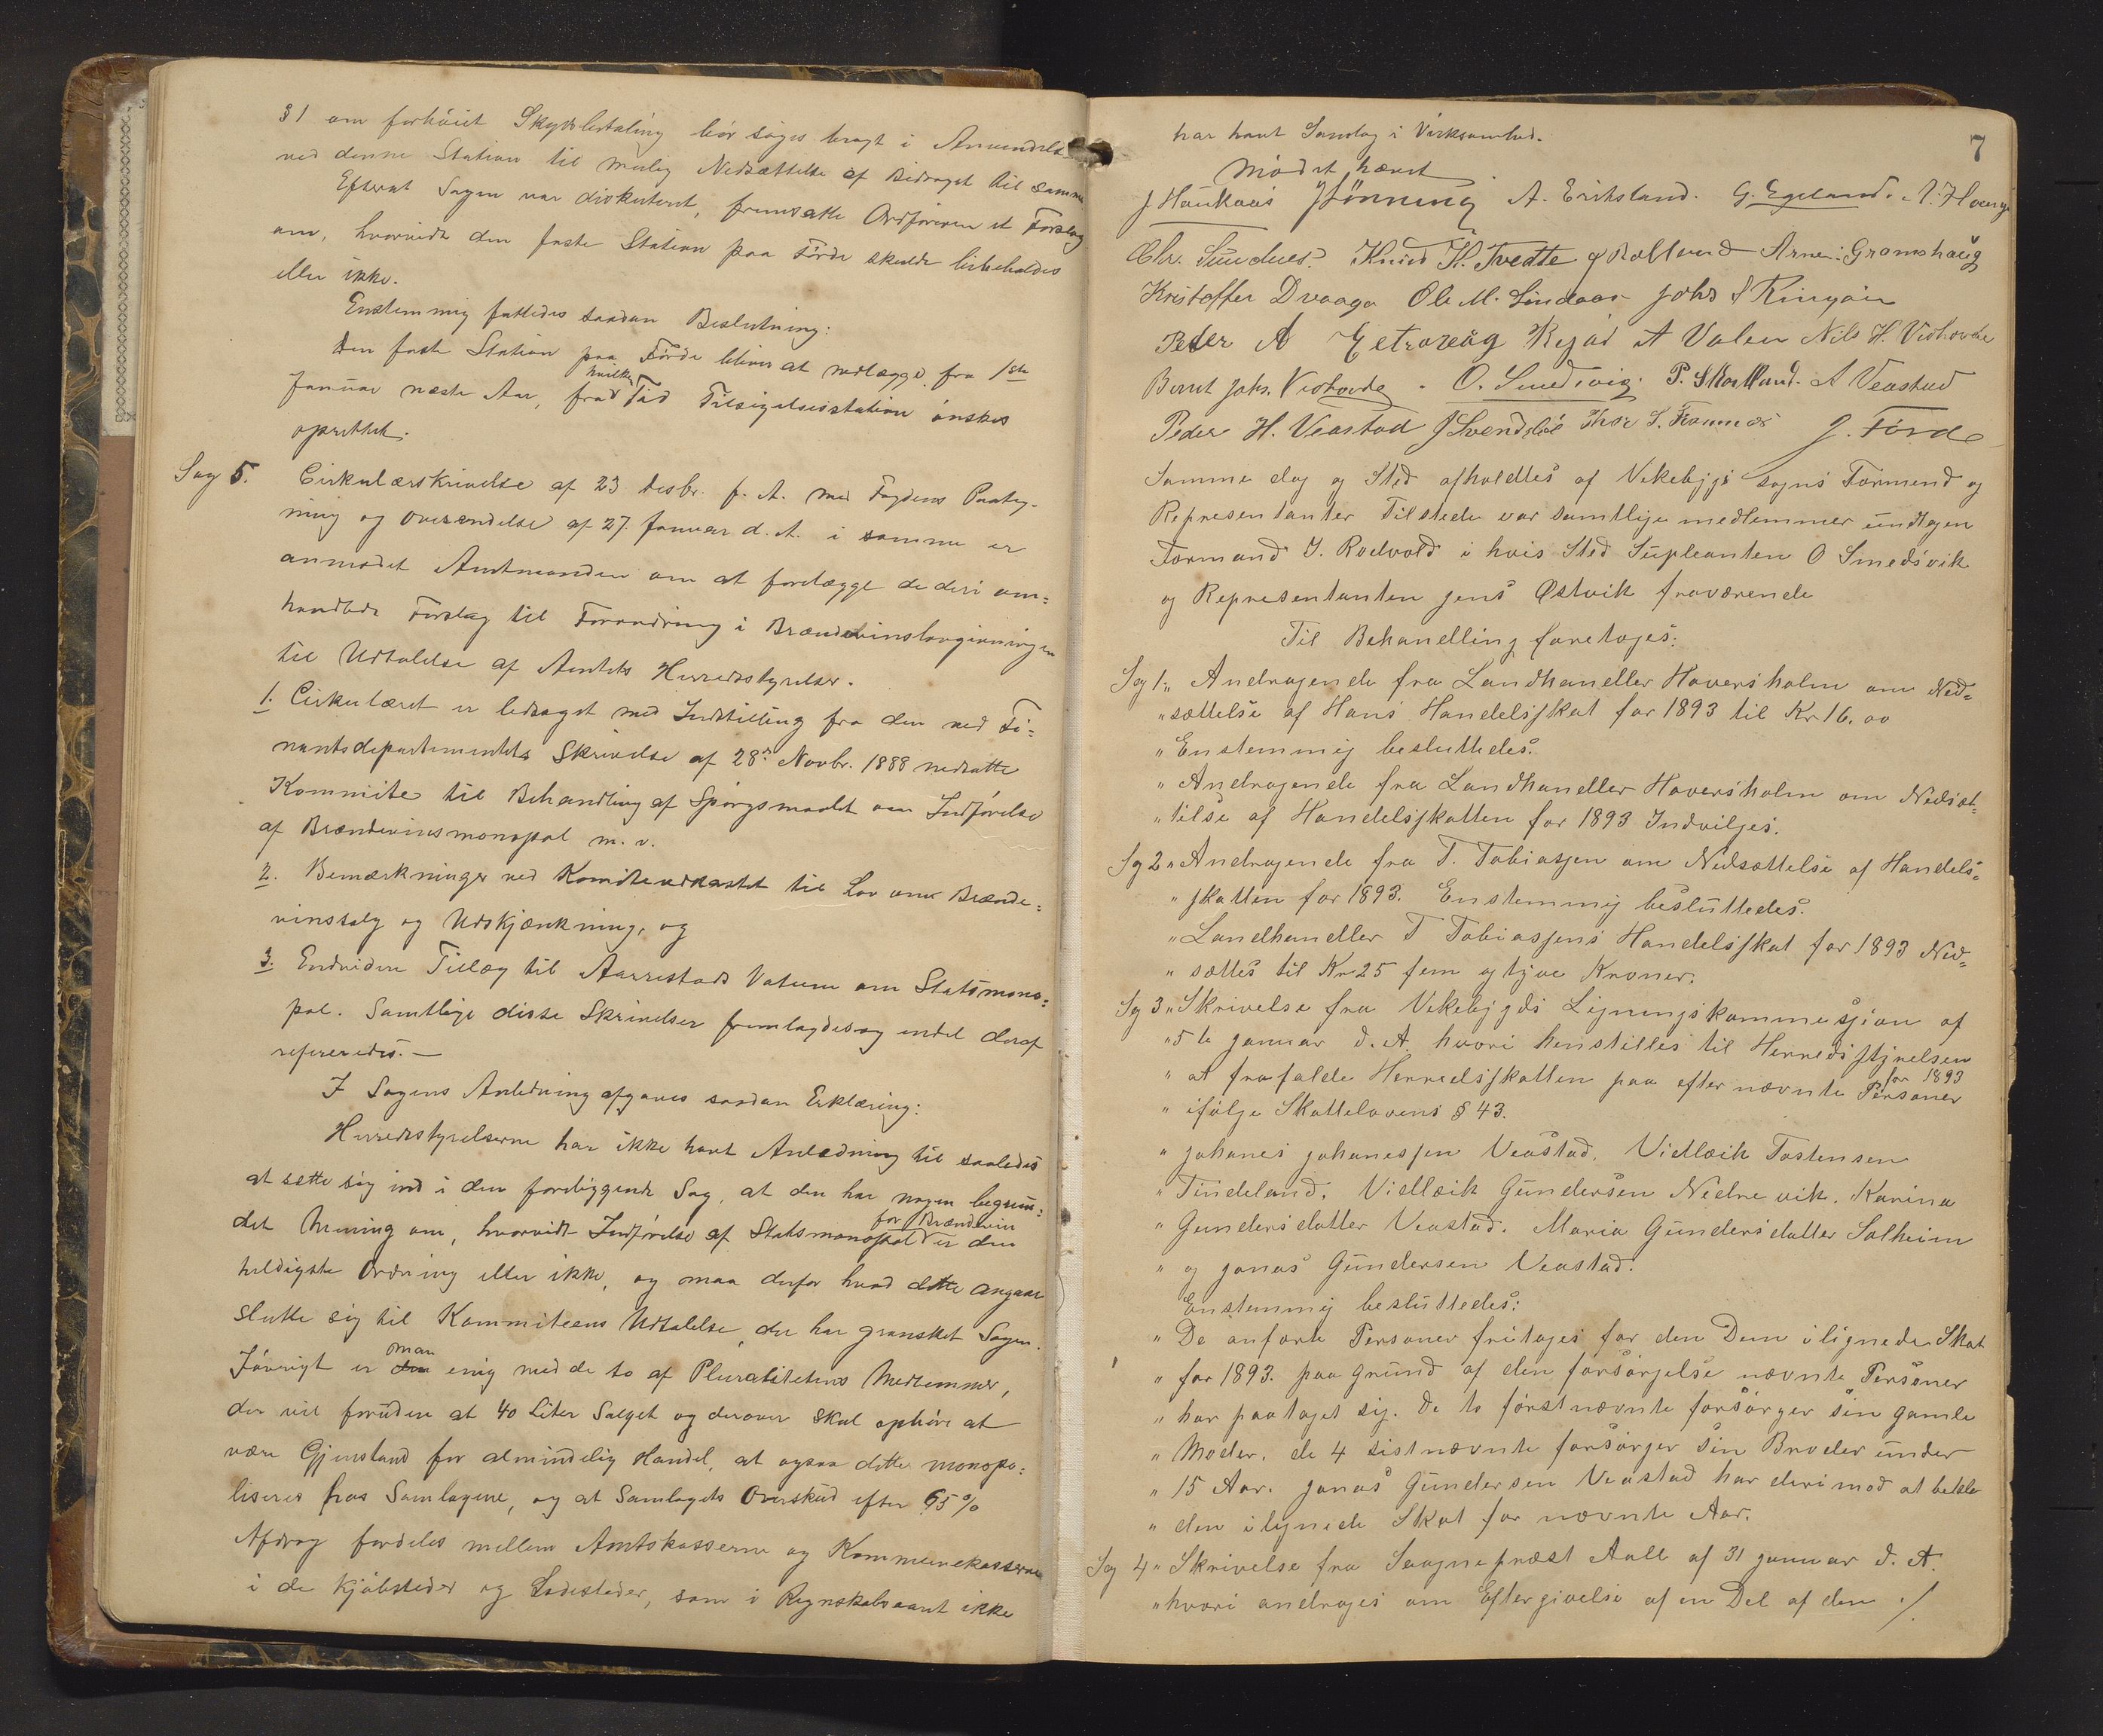 § 1 om forhöiet Skydsbetaling bör söges bragt i Anvendelse
ved denne Station til mulig Nedsættelse af Bidraget til samme
Efterat Sagen var diskuteret, fremsatte Ordföreren et Forslag
om, hvorvidt den faste Station paa Förde skulde bibeholdes
eller ikke.
Enstemmig fattedes saadan Beslutning:
Den faste Station paa Förde bliver at nedlægge fra 1ste
Januar næste Aar, fra hvilken Tid Tilsigelsesstation önskes
oprettet.
Sag 5. Cirkulærskrivelse af 23 desbr. f. A. med Fogdens Paateg-
ning og oversendelse af 27. Januar d. A. i samme er
anmodet Amtmanden om at forelægge de deri om=
handlede Forslag til Forandring i Brændevinslovgivningen
til Udtalelse af Amtets Herredsstyrelser.
1. Cirkulæret er ledsaget med Indstilling fra den ved Fi=
nantsdepartementets Skrivelse af 28de Novbr. 1888 nedsatte
Kommite til Behandling af Spörgsmaalet om Indförelse
af Brændevinsmonopol m. v.
2. Bemærkninger ved Komiteudkastet til Lov om Brænde=
vinssalg og Udskjænkning, og
3. Endvidere Tillæg til Aarrestads Votum om Statsmono=
pol. Samtlige disse Skrivelser fremlagdes og endel deraf
refereredes.—
I Sagens Anledning afgaves saadan Erklæring:
Herredsstyrelserne har ikke havt Anledning til saaledes
at sætte sig ind i den foreliggende Sag, at den har nogen begrun=
det Mening om, hvorvidt Indförelse af Statsmonopol for Brændevin er den
heldigste Ordning eller ikke, og maa derfor hvad dette angaar
slutte sig til Kommiteens Udtalelse, der har gransket Sagen.
Iövrigt er man enig med de to af Pluralitetens Medlemmer,
der vil foruden at 40 Liter Salget og derover skal ophöre at
være Gjenstand for almindelig Handel, at ogsaa dette monopo=
liseres hos Samlagene, og at Samlagets Overskud efter 65%
Afdrag fordeles mellem Amtskasserne og Kommunekasserne
i de Kjöbsteder og Ladesteder, som i Regnskabsaaret ikke
7
har havt Samlag i Virksomhed.
Mödet hævet
J Haukaas JHönning A. Eriksland. G. Egeland.
Chr. Sundnes. Knud H. Tvedte Arne Gramshaug
Kristoffer Dvaaga Ole M. Lindaas Johs
Peder A A Valen Nils H. Vidhovde
Bernt Johs. Vidhovde. O. Smedsvig. A Veastad
Peder H. Veastad J Svendsböe Thor S. J. Förde
Samme dag og Sted afholdtes af Vikebygd sogns Formænd og
Representanter Tilstede var samtlige medlemmer undtagen
Formand J. Rødvold i hvis Sted Supleanten O Smedsvik
og Representanten Jens Østvik fraværende
Til Behandling foretoges:
Sag 1 „ Andragende fra Landhandler Haversholm om Ned=
„ sættelse af Hans Handelsskat for 1893 til Kr 16.00
„ Enstemmig besluttedes.
„ Andragende fra Landhandler Haversholm om Nedsæt=
„ telse af Handelsskatten for 1893 Indvilges.
Sag 2 „ Andragende fra T. Tobiassen om Nedsættelse af Handels=
„ skatten for 1893. Enstemmig besluttedes.
„ Landhandler T Tobiassens Handelsskat for 1893 Ned=
„ sættes til Kr 25 fem og tyve Kroner.
Sag 3 „ Skrivelse fra Vikebygds Ligningskommesjion af
„ 5te Januar d. A. hvori henstilles til Herredsstyrelsen
„ at frafalde Herredsskatten paa efter nævnte Personer for 1893
„ ifölge Skattelovens § 43.
„ Johanes Johanessen Veastad. Vidleik Tostensen
„ Tindeland. Vidleik Gundersen Nedrevik. Karina
„ Gundersdatter Veastad. Maria Gundersdatter Solheim
„ og Jonas Gundersen Veastad.
Enstemmig besluttedes:
„ De anförte Personer fritages for den Dem ilignede Skat
„ for 1893. paa grund af den forsörgelse nævnte Personer
„ har paataget sig. De to förstnævnte forsörger sin gamle
„ Moder. de 4 sistnævnte forsörger sin Broder under
„ 15 Aar. Jonas Gundersen Veastad har derimod at betale
„ den ilignede Skat for nævnte Aar.
Sag 4 „ Skrivelse fra Saagnepræst Aall af 31 januar d. A.
„ hvori andrages om Eftergivelse af en Del af den ./.